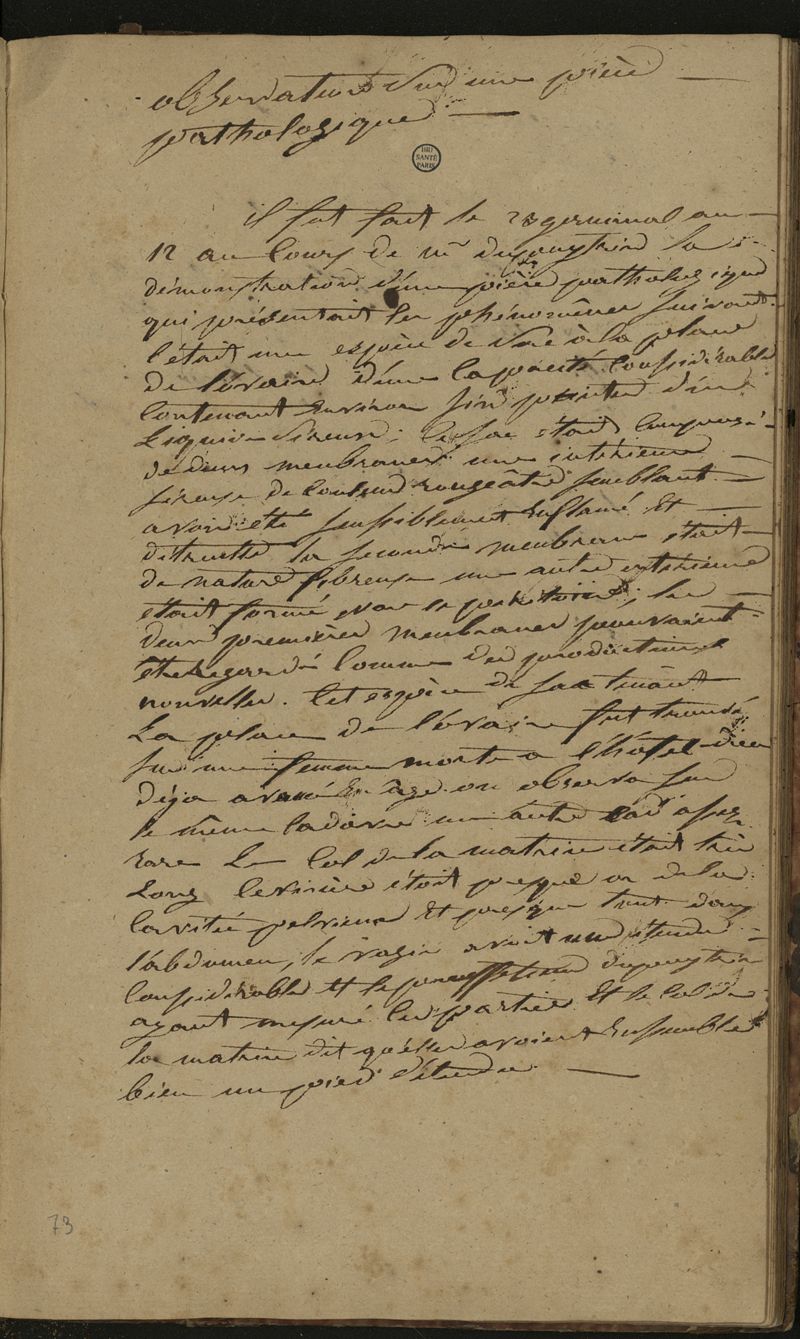 observation sur une pièce
pathologique
BIU SANTÉ PARIS
il fut fait le 28 germinal an
12 au cours de mr dupuytrin la
démonstration d'une pièce pathologique
qui présentait les phénomènes suivants
c'était une espèce de sac à la place
de l'ovaire d'une capacité considérable
contenant environ six pintes d'un
liquide séreux. le sac était composé
de deux membranes une intérieure
séreuse de couleur rougeâtre semblant
avoir été sensiblement enflamé et
détruite la seconde membrane était
de nature fibreuse une autre extérieure
était formé par le peritoine, les
deux premières membranes pouvaient
être regardé comme des productions
nouvelles. cet espèce de sac tenant
la place de l'ovaire fut trouvé
sur une femme morte a l'hotel dieu
déja avancé en âge on observa sur
le même cadavre un autre cas assez
rare le col de la matrice était très
long le viscère étoit presque or de la
cavité pelvienne et presque tout dans
l'abdomen, le vagin avoit une étendue
considérable et le professeur dupuytrin
ayant mesuré les parties et le col de
la matrice dit qu'elles avoient ensemble
bien un pied d'étendue
73